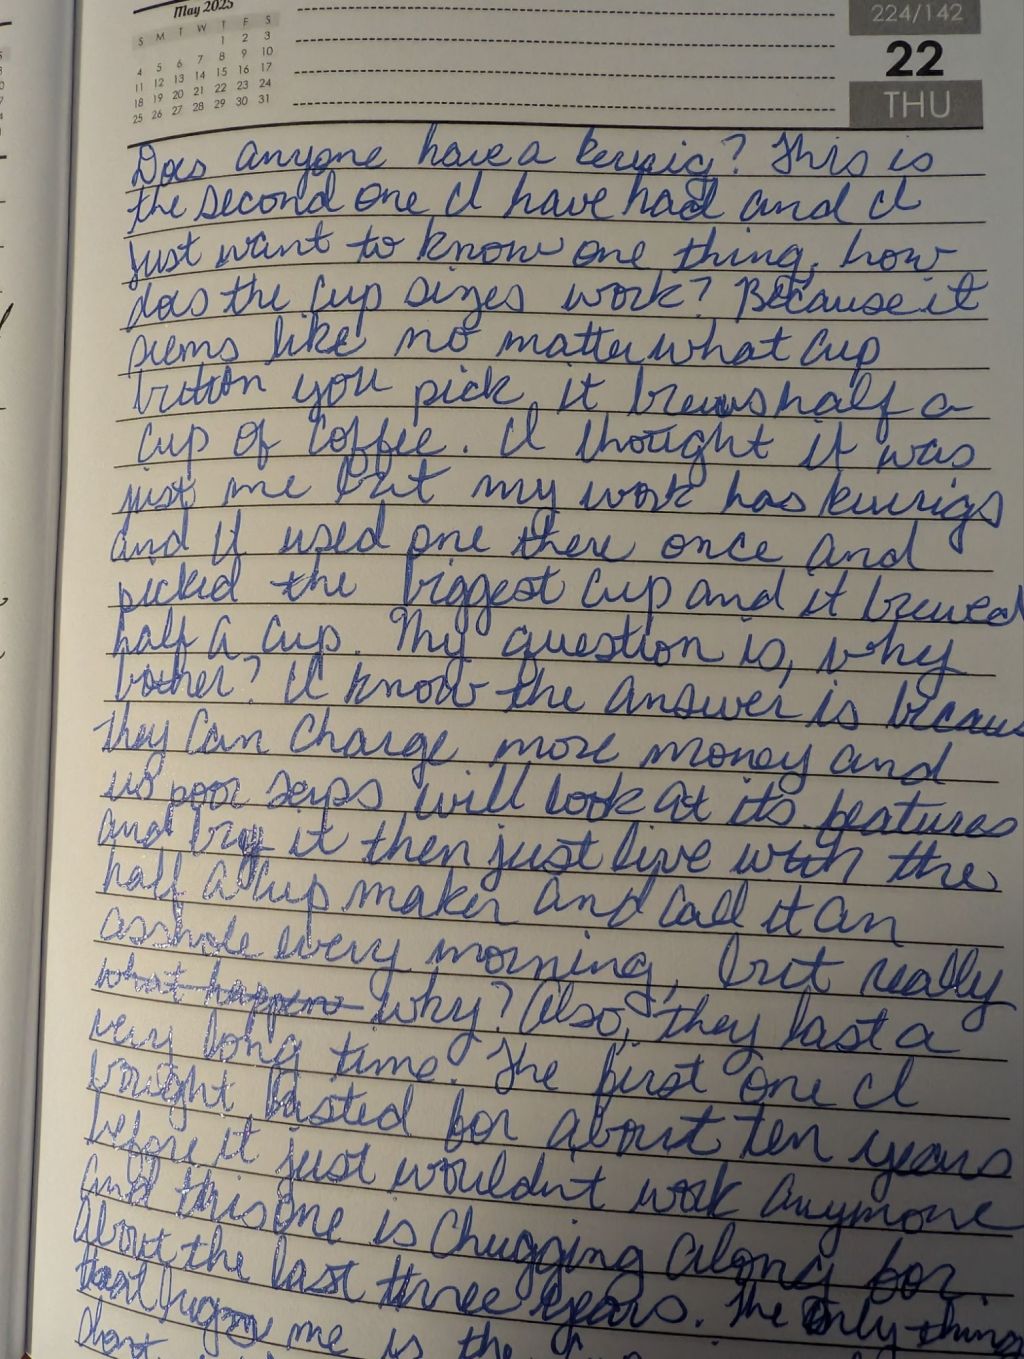 May 2025
S M T W T F S
1 2 3
4 5 6 7 8 9 10
11 12 13 14 15 16 17
18 19 20 21 22 23 24
25 26 27 28 29 30 31
224/142
22
THU
Does anyone have a keurig? This is
the second one I have had and I
just want to know one thing, how
does the cup sizes work? Because it
seems like no matter what cup
button you pick, it brews half a
cup of coffee. I thought it was
just me but my work has keurigs
and I used one there once and
picked the biggest cup and it brewed
half a cup. My question is, why
bother? I know the answer is becaus
they can charge more money and
us poor saps will look at its features
and buy it then just live with the
half a cup maker and call it an
asshole every morning, but really
what happen why? Also, they last a
very long time. The first one I
bought lasted for about ten years
before it just wouldn't work anymore
and this one is chugging along for
about the last three years. The only thing
that me is the